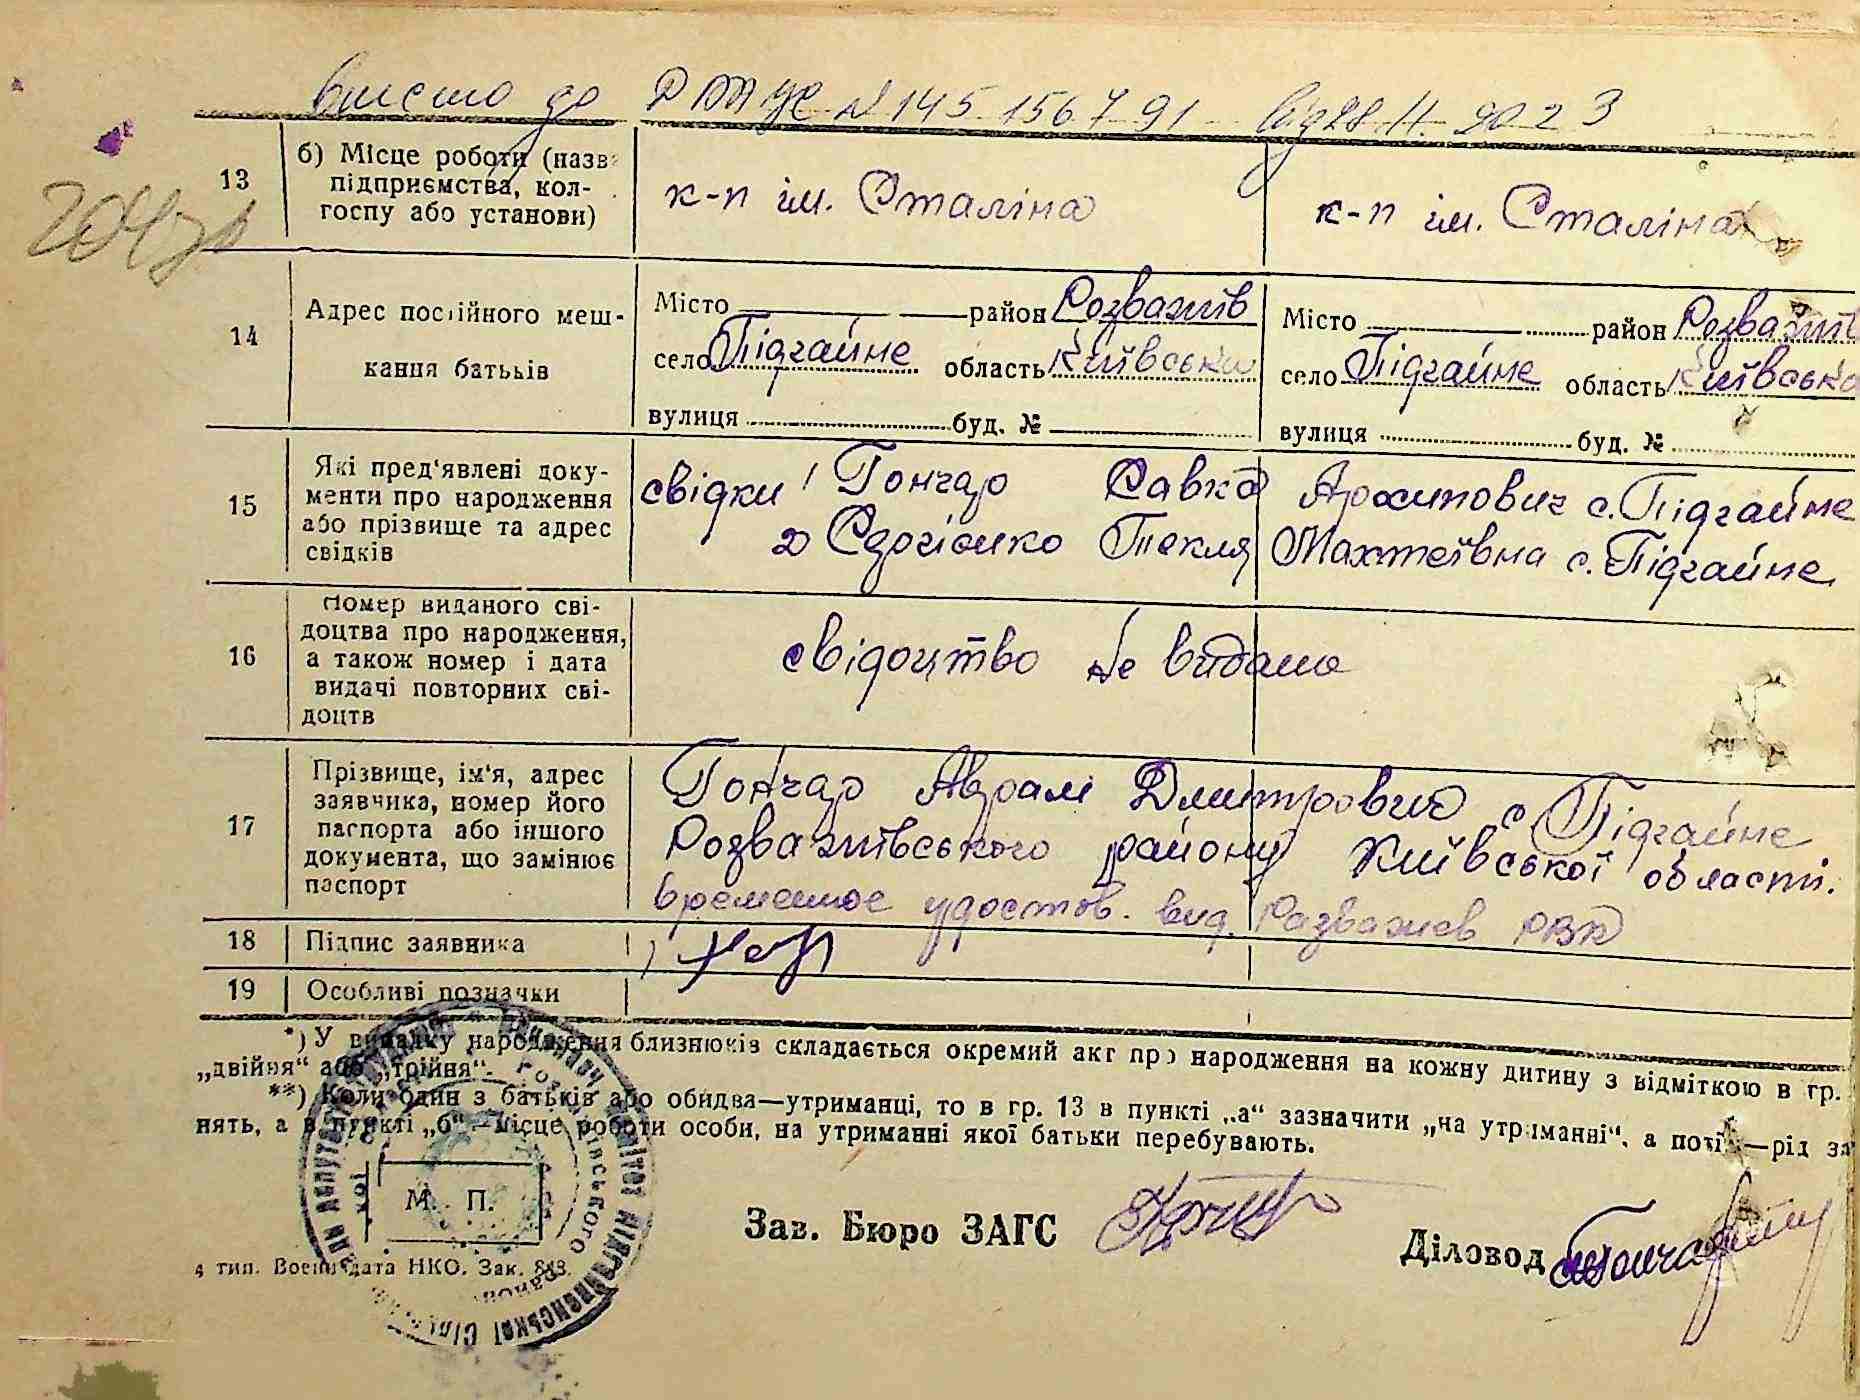 внесено до ДРАЦС № 145 1567 91 від 28.11.2023
13
б) Місце роботи (назва
підприємства, кол-
госпу або установи)
к-п ім. Сталіна
к-п ім. Сталіна
14
Адрес постійного меш-
кання батьків
Місто район Розважів
село Підгайне область Київська
вулиця буд. №
Місто район Розважів
село Підгайне область Київська
вулиця буд. №
15
Які пред'явлені доку-
менти про народження
або прізвище та адрес
свідків
свідки 1 Гончар Савка Архипович с. Підгайне
2 Текля Махтеївна с. Підгайне
16
Номер виданого сві-
доцтва про народження,
а також номер і дата
видачі повторних сві-
доцтв
свідоцтво не видано
17
Прізвище, ім'я, адрес
заявчика, номер його
паспорта або іншого
документа, що замінює
паспорт
Гончар Аврам Дмитрович с. Підгайне
Розважівського району Київської області.
временное удостов. выд. Розважев РВК
18
Підпис заявника
19
Особливі позначки
*) У випадку народження близнюків складається окремий акт про народження на кожну дитину з відміткою в гр.
„двійня“ або „трійня“.
**) Коли один з батьків або обидва—утриманці, то в гр. 13 в пункті „а“ зазначити „на утриманні“, а поті —рід за
нять, а в пункті „б“—місце роботи особи, на утриманні якої батьки перебувають.
М. П.
Зав. Бюро ЗАГС
Діловод
4 тип. Воениздата НКО. Зак. 818.